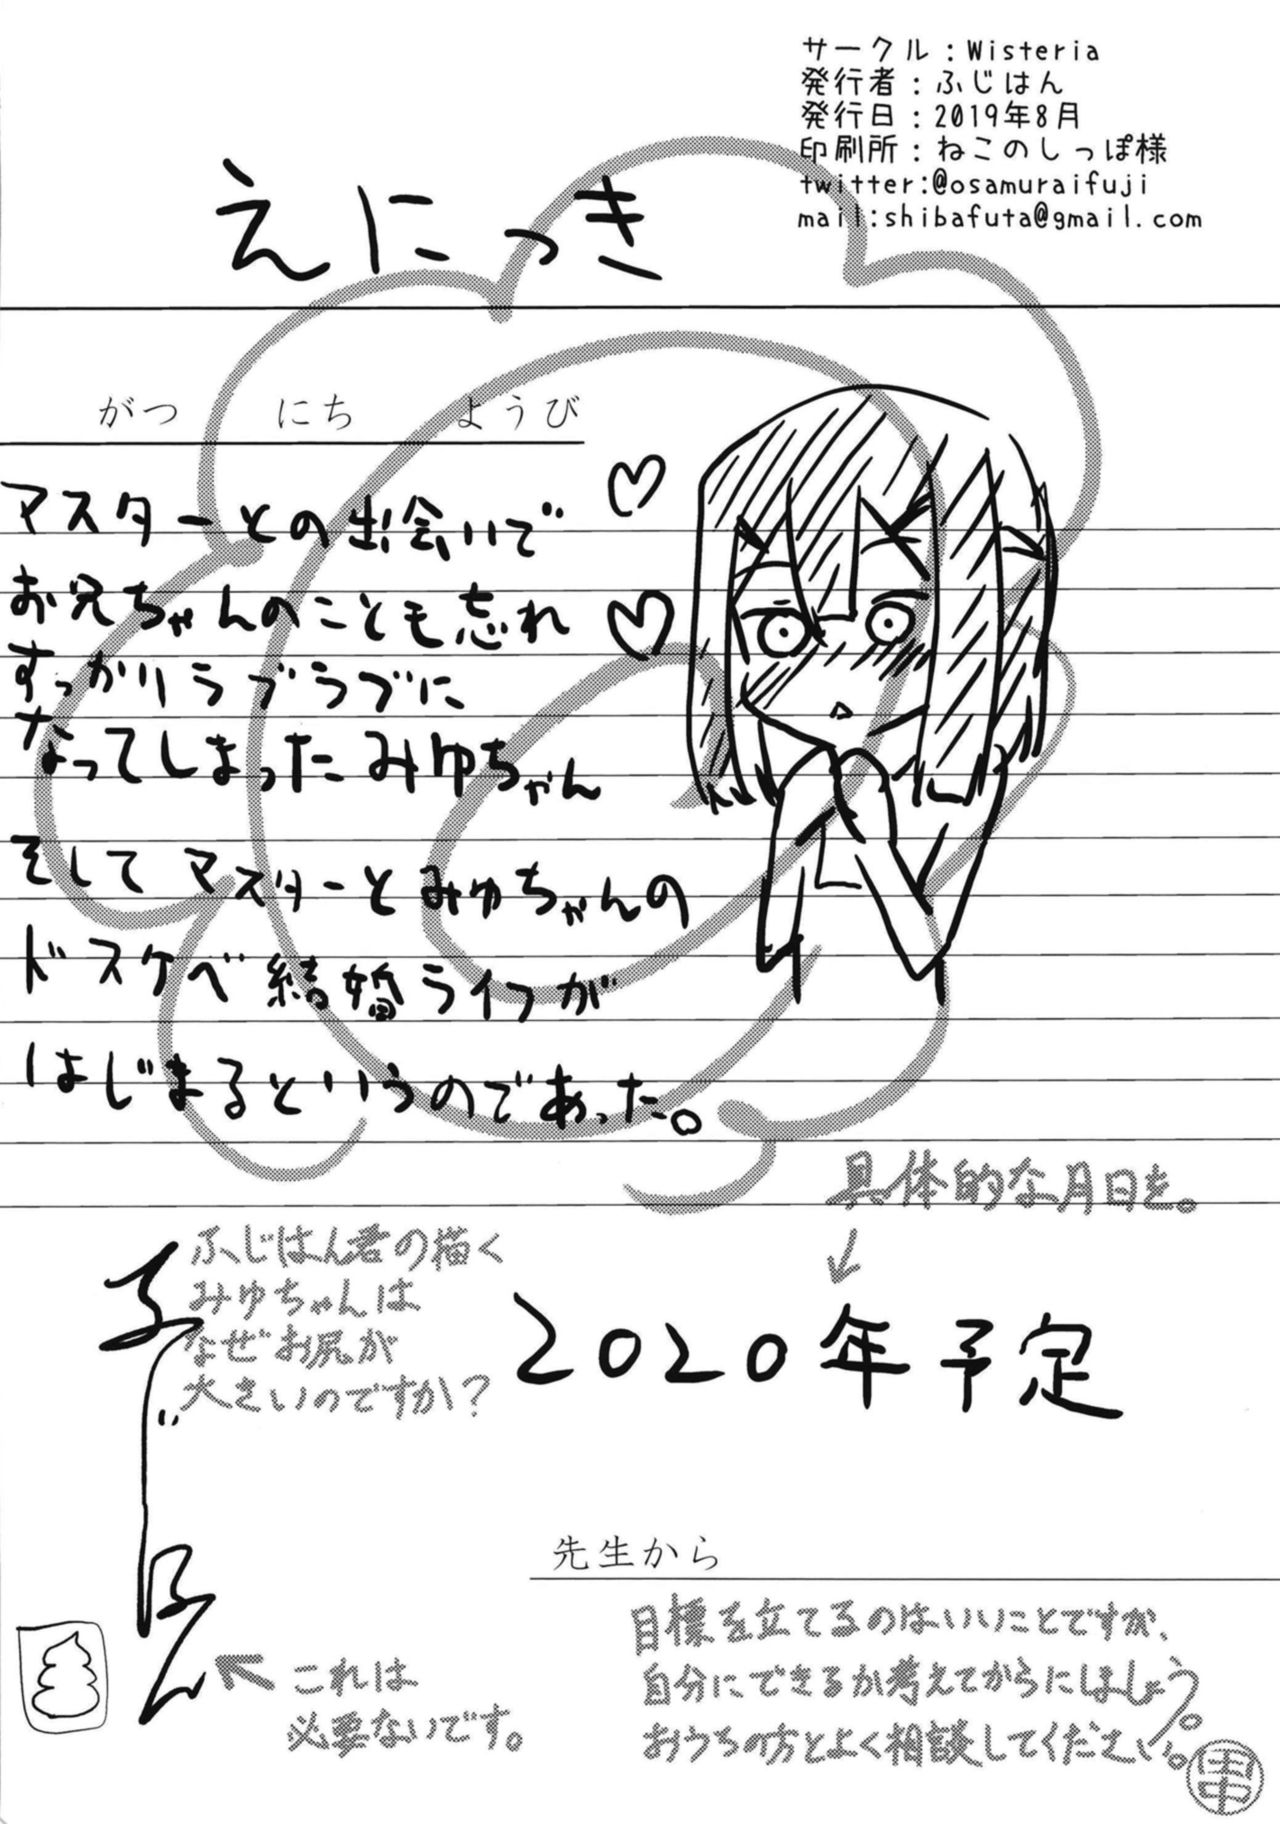 サークル:Wisteria
発行者:ふじはん
発行日:2019年8月
印刷所:ねこのしっぽ様
twitter:@osamuraifuji
mail:shibafuta@gmail.com
えにっき
がつ にち ようび
マスターとの出会いで
お兄ちゃんのことも忘れ
すっかりラブラブに
なってしまったみゆちゃん
そしてマスターとみゆちゃんの
ドスケベ結婚ライフが
はじまるというのであった。
具体的な月日を。
2020年予定
ふじはん君の描く
みゆちゃんは
なぜお尻が
大きいのですか?
ふじはん
これは
必要ないです。
先生から
目標を立てるのはいいことですが、
自分にできるか考えてからにしましょう。
おうちの方とよく相談してください。
田中